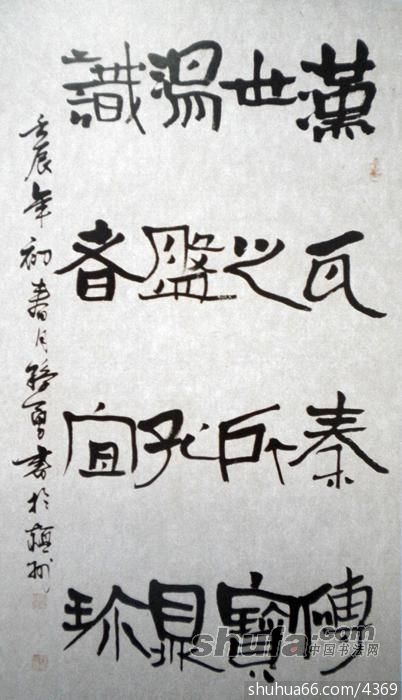 漢瓦秦
世之所寶
湯盤孔鼎
識者宜珍
壬辰年初春月勇書於州
shufa.com
中国书法网
shuhua66.com/4369